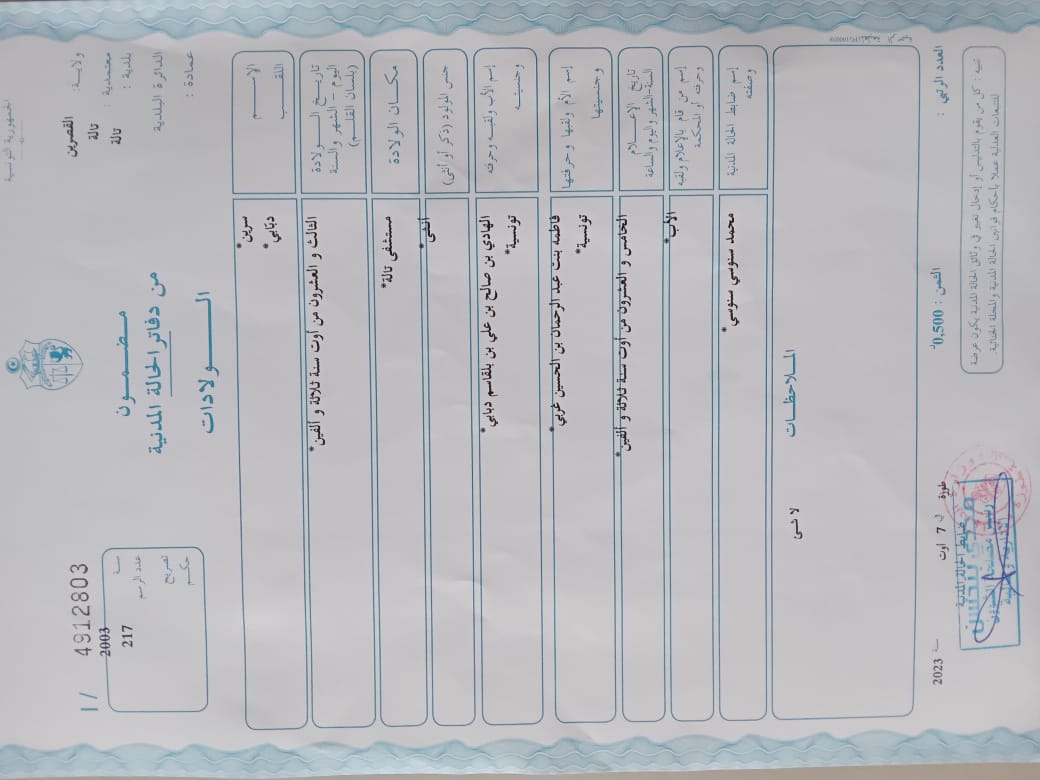 الجمهورية التونسية
ولاية : القصرين
معتمدية : تالة
بلدية : تالة
الدائرة البلدية
عمادة :
مضمون
من دفاتر الحالة المدنية
الولادات
I / 4912803
سنة 2003
عدد الرسم 217
تصريح
حكم
الاسم سرين*
اللقب دبابي*
تاريخ الولادة
اليوم - الشهر والسنة
(بلسان القلم)
الثالث و العشرون من أوت سنة ثلاثة و ألفين*
مكان الولادة مستشفى تالة*
جنس المولود (ذكر أو أنثى) أنثى*
إسم الأب ولقبه وحرفته الهادي بن صالح بن علي بن بلقاسم دبابي*
وجنسيته تونسية*
إسم الأم ولقبها وحرفتها فاطمة بنت عبد الرحمان بن الحسين غربي*
وجنسيتها تونسية*
تاريخ الإعلام
السنة-الشهر واليوم والساعة
الخامس و العشرون من أوت سنة ثلاثة و ألفين*
إسم من قام بالإعلام ولقبه
وحرفته أو المحكمة
الأب*
إسم ضابط الحالة المدنية
وصفته
محمد سنوسي سنوسي*
الملاحظات
لا شئ
العدد الرتبي :
الثمن : 0,500د
في 7 أوت سنة 2023
ضابط الحالة المدنية
تنبيه : كل من يقوم بالتدليس أو إدخال تغيير في وثائق الحالة المدنية يكون عرضة
للتتبعات العدلية عملا بأحكام قوانين الحالة المدنية والمجلة الجنائية.